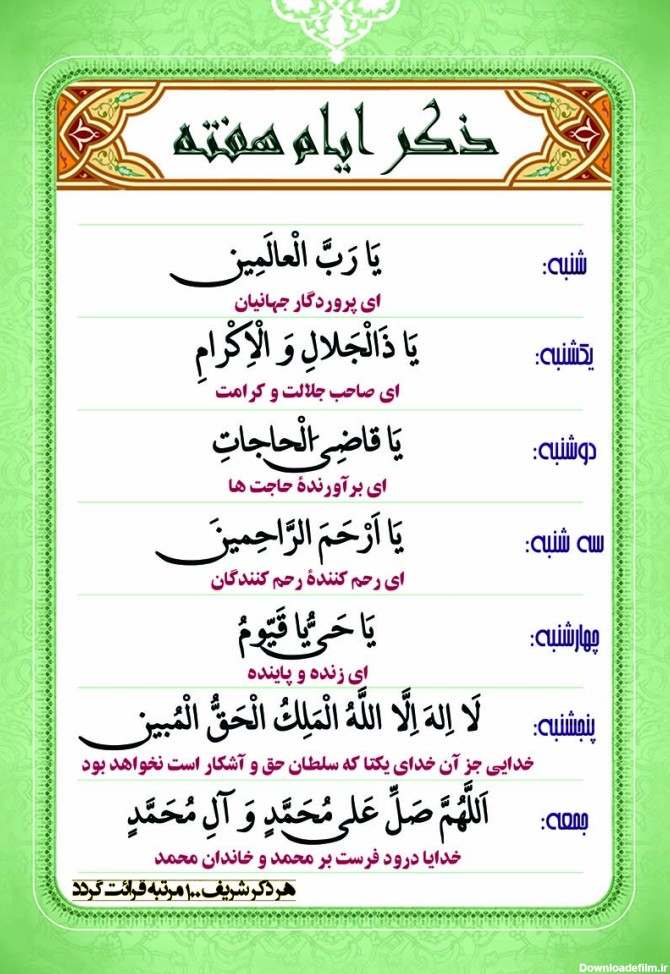 ذکر ایام هفته
شنبه: یَا رَبَّ الْعالَمِین
ای پروردگار جهانیان
یکشنبه: یَا ذَالْجَلالِ وَ الْاِکْرامِ
ای صاحب جلالت و کرامت
دوشنبه: یَا قاضِیَ الْحاجاتِ
ای برآورندهٔ حاجت ها
سه شنبه: یَا اَرْحَمَ الرَّاحِمینَ
ای رحم کنندهٔ رحم کنندگان
چهارشنبه: یَا حَیُّ یَا قَیّومُ
ای زنده و پاینده
پنجشنبه: لَا اِلهَ اِلَّا اللَّهُ الْمَلِکُ الْحَقُّ الْمُبین
خدایی جز آن خدای یکتا که سلطان حق و آشکار است نخواهد بود
جمعه: اَللَّهُمَّ صَلِّ عَلی مُحَمَّدٍ وَ آلِ مُحَمَّدٍ
خدایا درود فرست بر محمد و خاندان محمد
هر ذکر شریف ۱۰۰ مرتبه قرائت گردد
Downloadefilm.ir